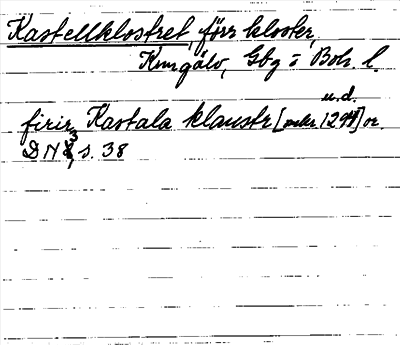 Kastellklostret, förr kloster,
Kungälv, Gbg o Boh. l.
u. d.
firir Kastala klaustr [omkr. 1294] or.
DN 3, s. 38